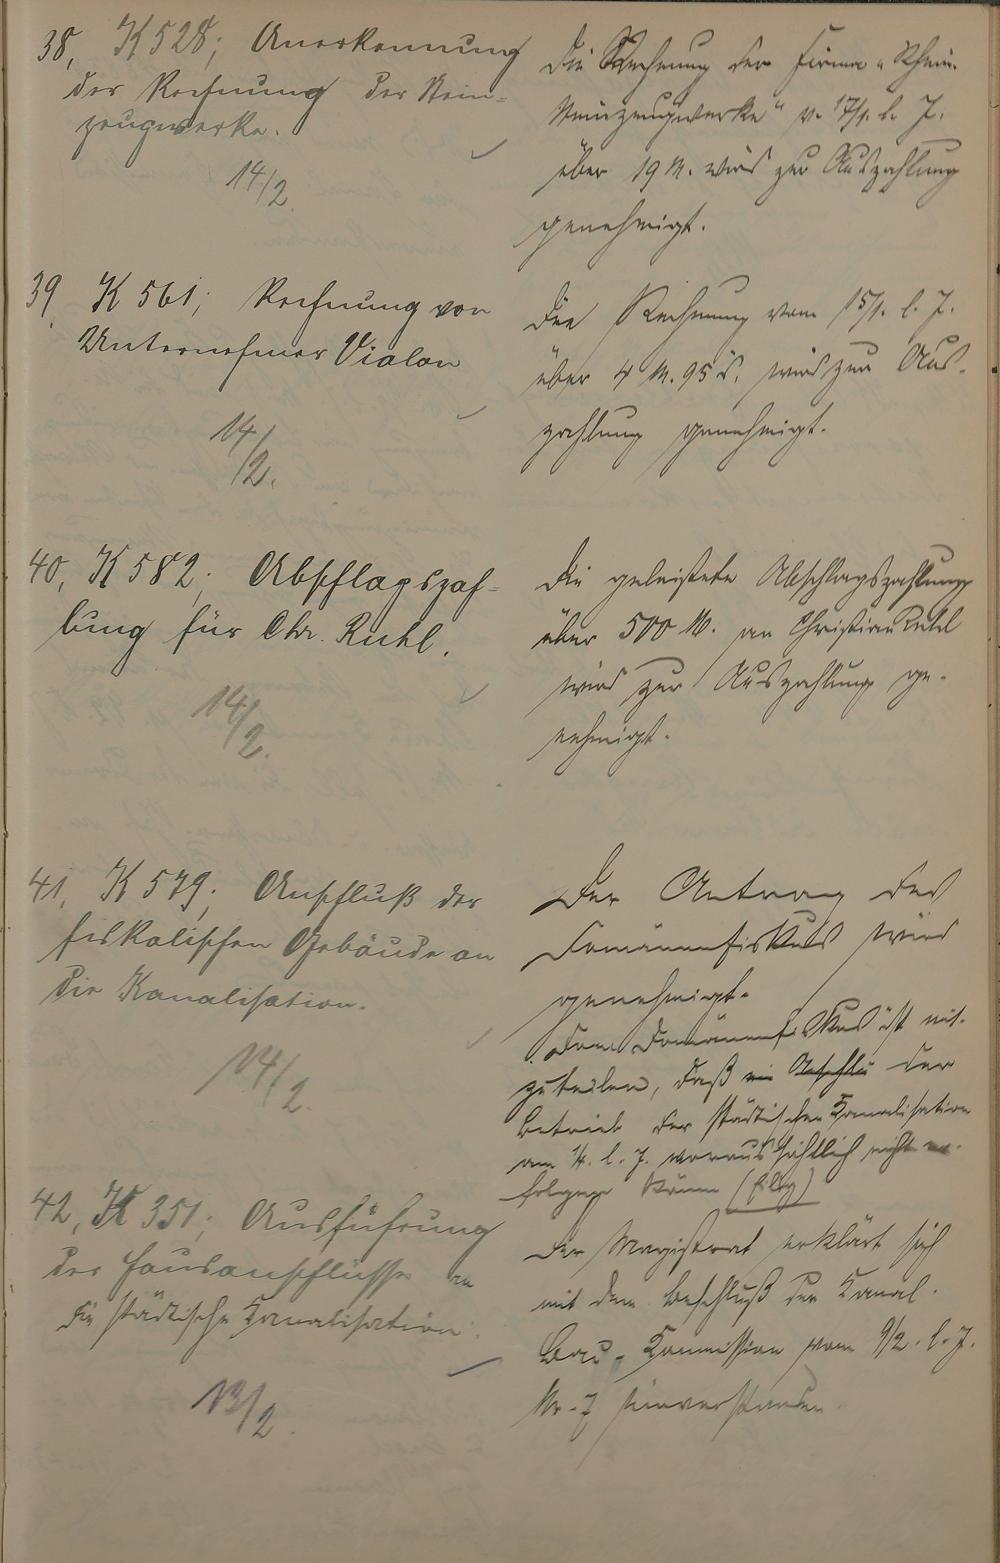 38, K 528; Anerkennung
der Rechnung der Stein-
zeugwerke.
14/2.
Die Rechnung der Firma „Rhein.
Steinzeugwerke" v. 17/1. l. J.
über 19 M. wird zur Auszahlung
genehmigt.
39, K 561; Rechnung von
Unternehmer Violon
14/2.
Die Rechnung vom 15/1. l. J.
über 4 M. 95 d. wird zur Aus-
zahlung genehmigt.
40, K 582; Abschlagszah-
lung für Chr. Ruhl.
14/2.
Die geleistete Abschlagszahlung
über 500 M. an Christian Ruhl
wird zur Auszahlung ge-
nehmigt.
41, K 579; Anschluß der
fiskalischen Gebäude an
die Kanalisation.
14/2.
Der Antrag des
Domänenfiskus wird
genehmigt.
Dem Domänenfiskus ist mit-
zuteilen, daß ein Anschlu der
Betrieb der städtischen Kanalisation
am 1/4. l. J. voraussichtlich nicht er-
folgen könne
42, K 351; Ausführung
der Hausanschlüsse an
die städtische Kanalisation.
13/2.
Der Magistrat erklärt sich
mit dem Beschluß der Kanal-
Bau-Kommission vom 9/2. l. J.
Nr. 7 einverstanden